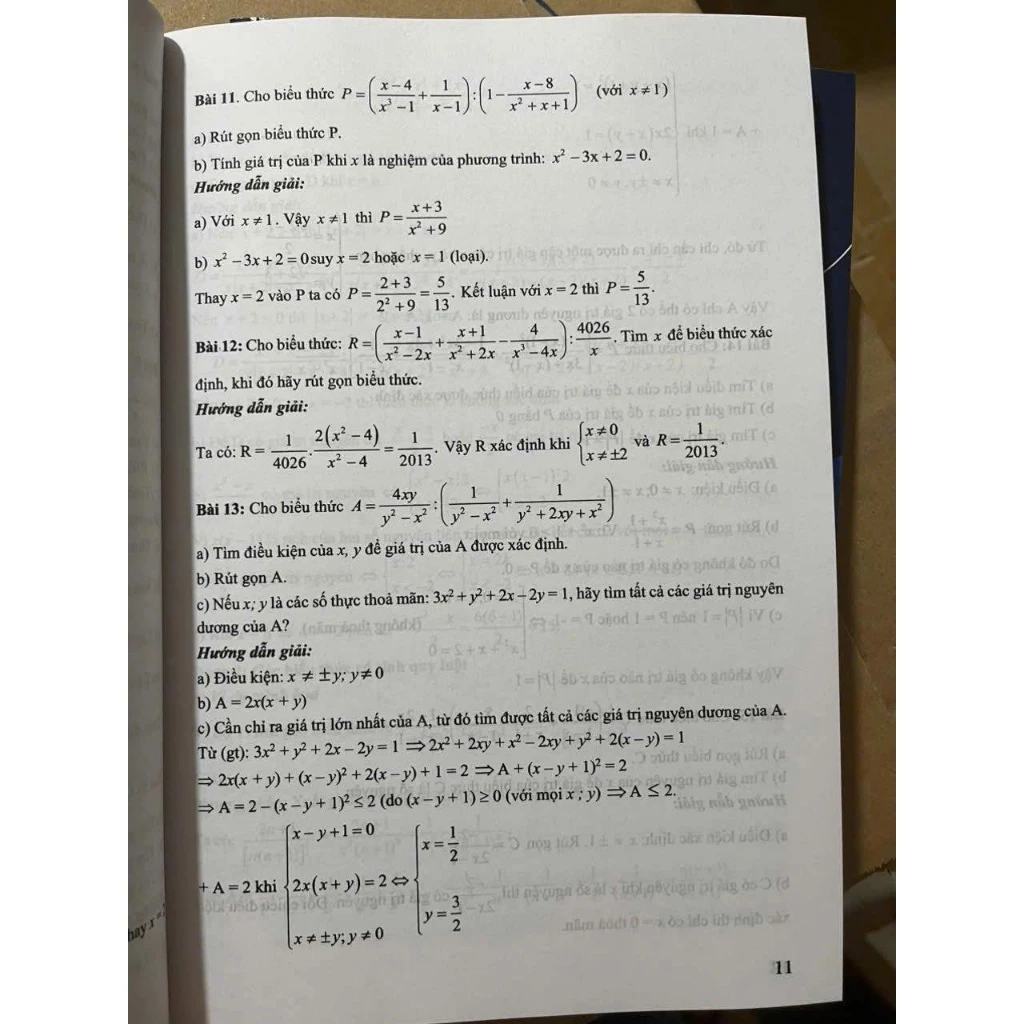 Bài 11. Cho biểu thức P = ( (x−4)/(x³−1) + 1/(x−1) ) : ( 1 − (x−8)/(x²+x+1) ) (với x ≠ 1)
a) Rút gọn biểu thức P.
b) Tính giá trị của P khi x là nghiệm của phương trình: x² − 3x + 2 = 0.
Hướng dẫn giải:
a) Với x ≠ 1. Vậy x ≠ 1 thì P = (x+3)/(x²+9)
b) x² − 3x + 2 = 0 suy x = 2 hoặc x = 1 (loại).
Thay x = 2 vào P ta có P = (2+3)/(2²+9) = 5/13. Kết luận với x = 2 thì P = 5/13.
Bài 12: Cho biểu thức: R = ( (x−1)/(x²−2x) + (x+1)/(x²+2x) − 4/(x³−4x) ) : 4026/x. Tìm x để biểu thức xác
định, khi đó hãy rút gọn biểu thức.
Hướng dẫn giải:
Ta có: R = 1/4026 . 2(x²−4)/(x²−4) = 1/2013. Vậy R xác định khi { x ≠ 0 x ≠ ±2 và R = 1/2013.
Bài 13: Cho biểu thức A = 4xy/(y²−x²) : ( 1/(y²−x²) + 1/(y²+2xy+x²) )
a) Tìm điều kiện của x, y để giá trị của A được xác định.
b) Rút gọn A.
c) Nếu x; y là các số thực thoả mãn: 3x² + y² + 2x − 2y = 1, hãy tìm tất cả các giá trị nguyên
dương của A?
Hướng dẫn giải:
a) Điều kiện: x ≠ ±y; y ≠ 0
b) A = 2x(x + y)
c) Cần chỉ ra giá trị lớn nhất của A, từ đó tìm được tất cả các giá trị nguyên dương của A.
Từ (gt): 3x² + y² + 2x − 2y = 1 ⇒ 2x² + 2xy + x² − 2xy + y² + 2(x − y) = 1
⇒ 2x(x + y) + (x − y)² + 2(x − y) + 1 = 2 ⇒ A + (x − y + 1)² = 2
⇒ A = 2 − (x − y + 1)² ≤ 2 (do (x − y + 1) ≥ 0 (với mọi x ; y) ⇒ A ≤ 2.
+ A = 2 khi { x − y + 1 = 0 2x(x + y) = 2 x ≠ ±y; y ≠ 0 ⇔ { x = 1/2 y = 3/2
hay x
11